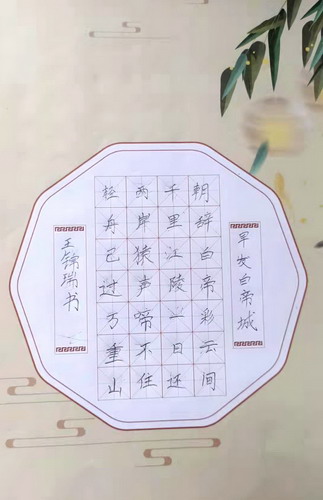 早发白帝城
朝辞白帝彩云间
千里江陵一日还
两岸猿声啼不住
轻舟已过万重山
王锦瑞书